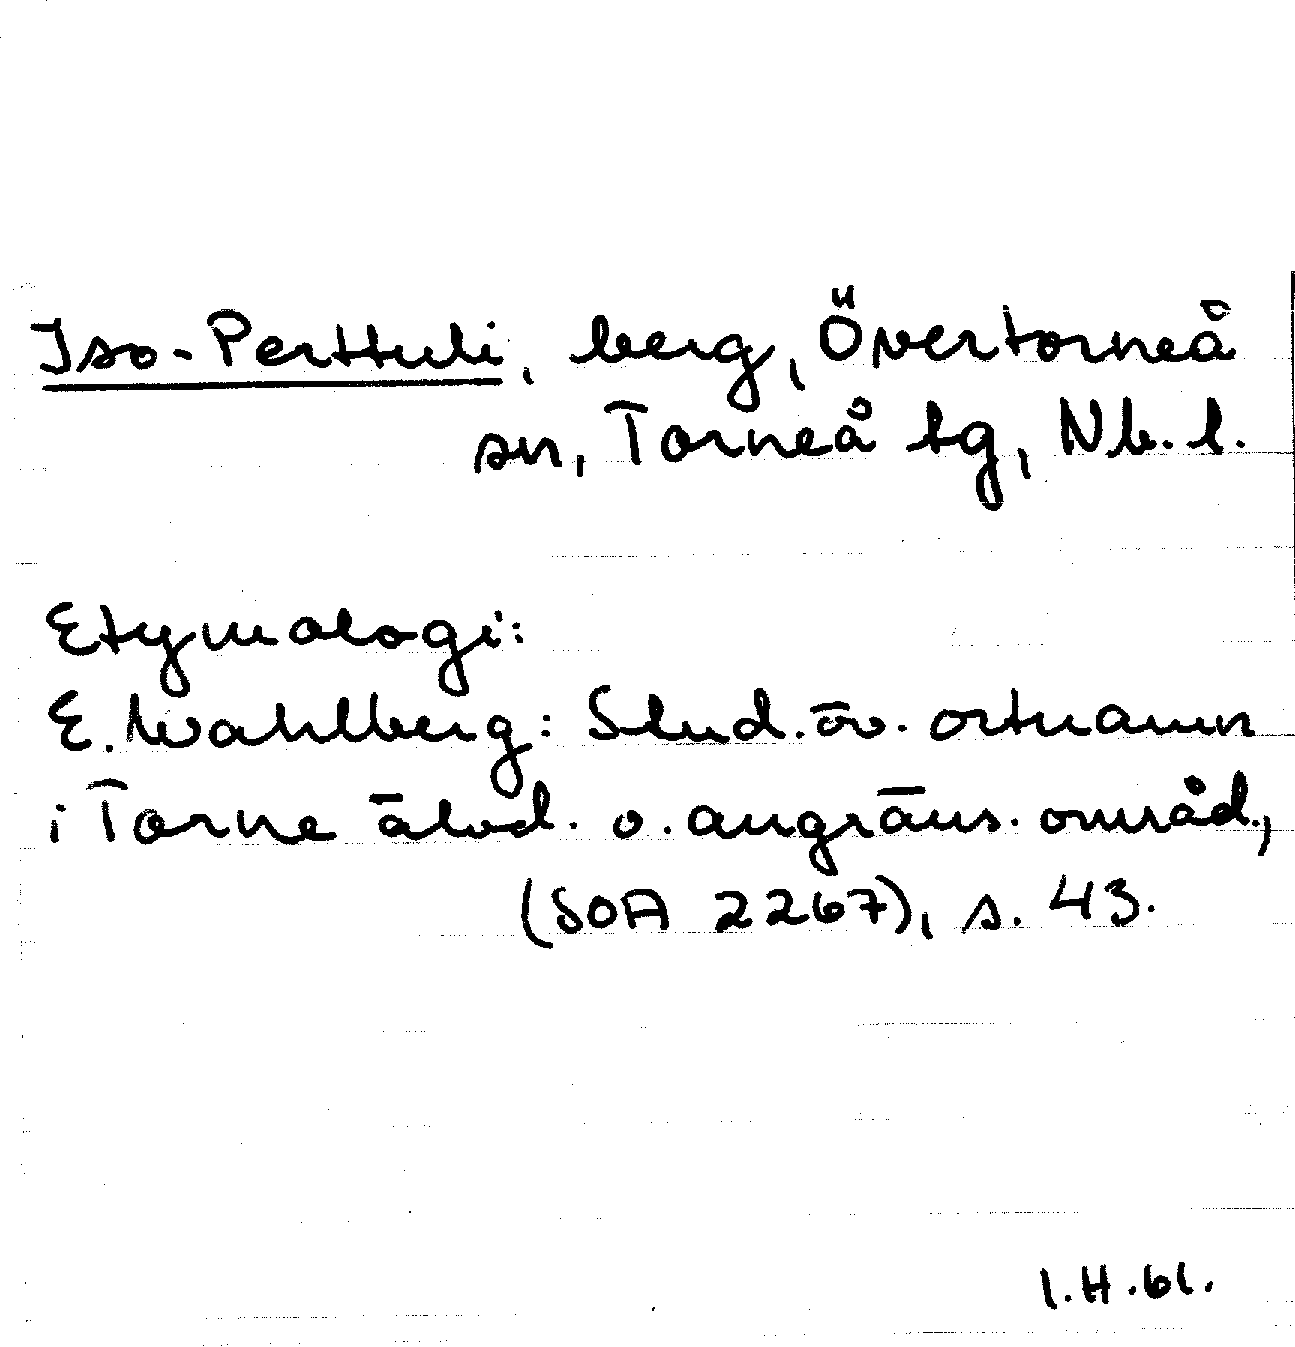 Iso-Perttuli, berg, Övertorneå
sn, Torneå tg, Nb. l.
Etymologi:
E. Wahlberg: Stud. öv. ortnamn
i Torne älvd. o. angräns. områd.,
(SOA 2267), s. 43.
I.H.61.